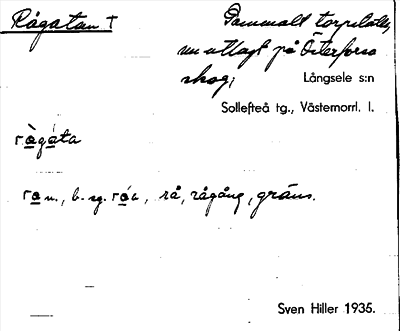 Rågatan †
Gammalt torpställe,
nu utlagt på Österforse
skog,
Långsele s:n
Sollefteå tg., Västernorrl. l.
rògáta
ra n., b. sg. róa, rå, rågång, gräns.
Sven Hiller 1935.